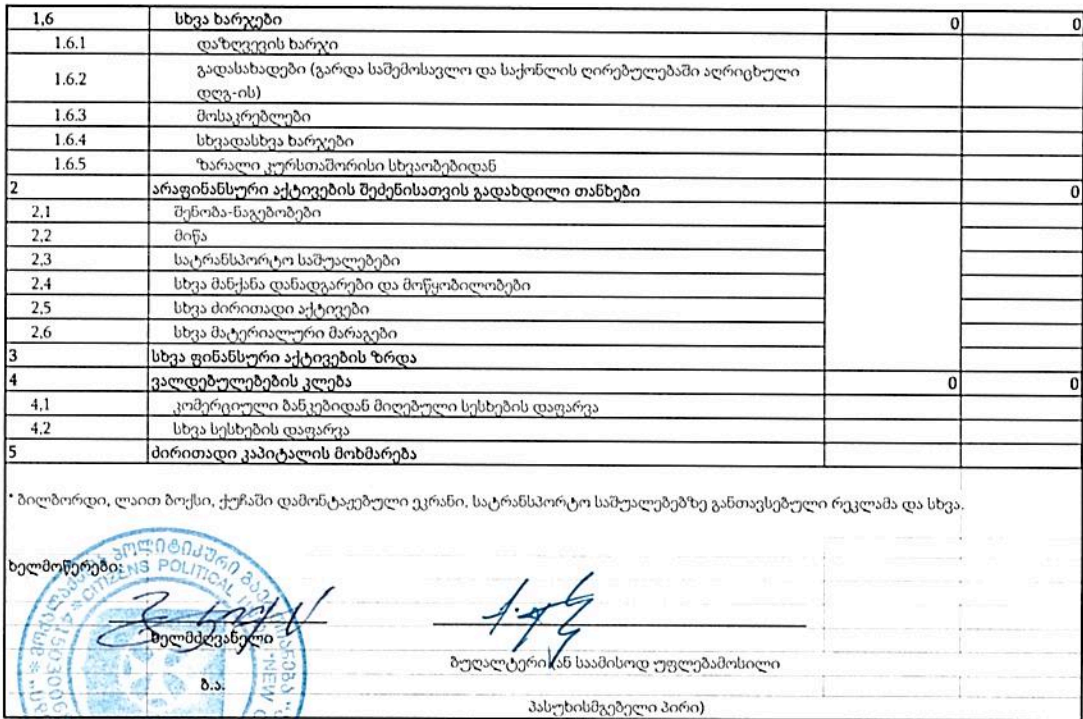 1,6 სხვა ხარჯები 0 0
1.6.1 დაზღვევის ხარჯი
1.6.2 გადასახადები (გარდა საშემოსავლო და საქონლის ღირებულებაში აღრიცხული
დღგ-ის)
1.6.3 მოსაკრებლები
1.6.4 სხვადასხვა ხარჯები
1.6.5 ზარალი კურსთაშორისი სხვაობებიდან
2 არაფინანსური აქტივების შეძენისათვის გადახდილი თანხები 0
2,1 შენობა-ნაგებობები
2,2 მიწა
2,3 სატრანსპორტო საშუალებები
2,4 სხვა მანქანა დანადგარები და მოწყობილობები
2,5 სხვა ძირითადი აქტივები
2,6 სხვა მატერიალური მარაგები
3 სხვა ფინანსური აქტივების ზრდა
4 ვალდებულებების კლება 0 0
4,1 კომერციული ბანკებიდან მიღებული სესხების დაფარვა
4,2 სხვა სესხების დაფარვა
5 ძირითადი კაპიტალის მოხმარება
* ბილბორდი, ლაით ბოქსი, ქუჩაში დამონტაჟებული ეკრანი, სატრანსპორტო საშუალებებზე განთავსებული რეკლამა და სხვა.
ხელმოწერები:
პოლიტიკური
CITIZENS POLITICAL
ხელმძღვანელი
ბუღალტერი ან საამისოდ უფლებამოსილი
ბ.ა.
პასუხისმგებელი პირი)